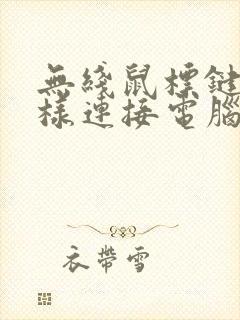 無綫鼠標鍵
樣連接電腦
衣帶雪